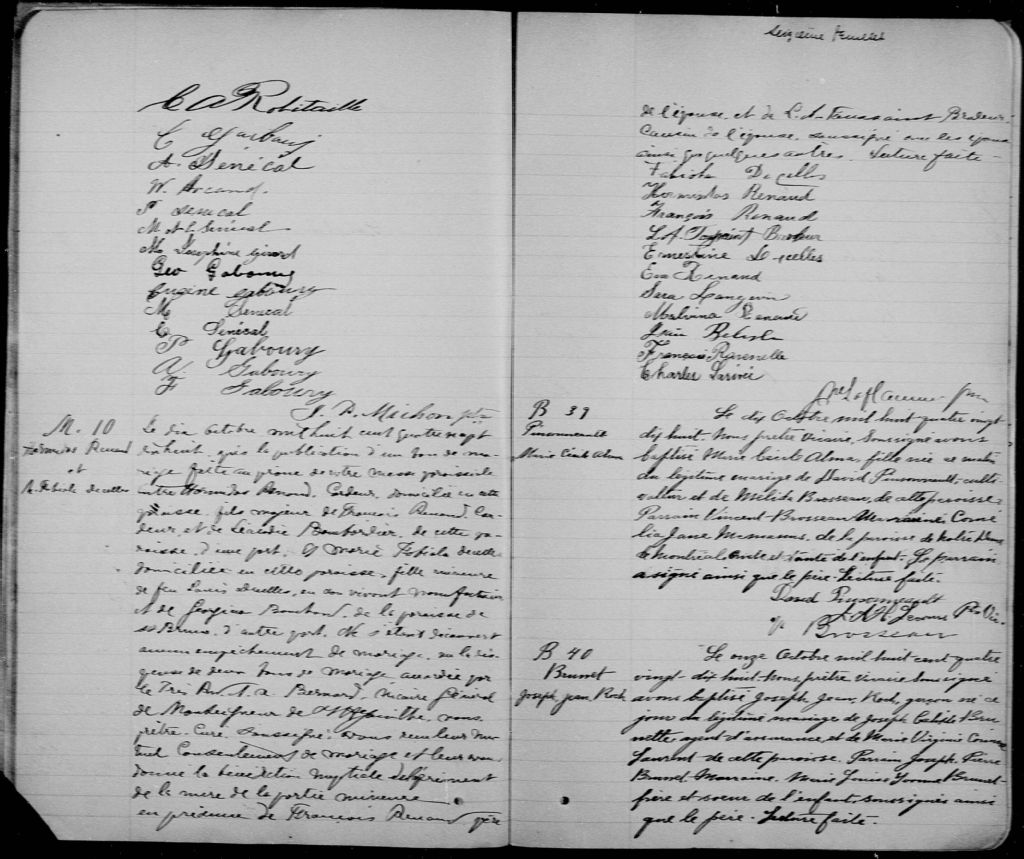 C A Robitaille
C Garbary
A. Sénécal
W. Arcand.
F. Senecal
M A L Sénécal
M. Josephine Girard
Geo Gaboury
Eugène Gaboury
M Senecal
C Senécal
P Gaboury
V. Gaboury
F Gaboury
J. P. Michon ptre
M. 10
Hormisdas Renaud
et
Le dix octobre mil huit cent quatre vingt
dix huit, après la publication d'un ban de ma-
riage faite au prône de notre messe paroissiale
entre Hormisdas Renaud, Cardeur, domicilié en cette
paroisse, fils majeur de François Renaud, Car-
deur, et de Léocadie Bombardier, de cette pa-
roisse, d'une part, Et Marie Fabiola Decelles
domiciliée en cette paroisse, fille mineure
de feu Louis Decelles, en son vivant manufacturier
et de Georgina de la paroisse de
St Bruno, d'autre part. Ne s'étant découvert
aucun empêchement de mariage, vu la dis-
pense de deux bans de mariage accordée par
le Très Rev. A. Bernard, Vicaire Général
de Monseigneur de St Hyacinthe, nous
prêtre, Curé, soussigné, avons reçu leur mu-
tuel Consentement de mariage et leur avons
donné la bénédiction nuptiale du
de la mère de la partie mineure
en présence de François Renaud, père
Seizième feuillet
de l'épouse, et de L. A. Toussaint Brodeur
Cousin de l'épouse, soussignés avec les époux
ainsi que quelques autres. Lecture faite -
Fabiola Decelles
Hormisdas Renaud
François Renaud
L. A. Toussaint Brodeur
Ernestine Decelles
Eva Renaud
Sara Langevin
Malvina Renaud
François Ravenelle
Charles Larivée
B 39
Pinsonneault
Marie Cécile Alma
Le dix Octobre mil huit quatre vingt-
dix huit. Nous prêtre vicaire, soussigné avons
baptisé Marie Cécile Alma, fille née ce matin
du légitime mariage de David Pinsonnault, culti-
vateur et de Mélida Brosseau, de cette paroisse.
Parrain Vincent Brosseau Marraine Corné
lia Jane de la paroisse de Notre Dame
de Montréal oncle et tante de l'enfant. Le parrain
a signé ainsi que le père. Lecture faite.
David Pinsonneault
Brosseau
B 40
Brunet
Joseph, Jean, Roch
Le onze Octobre mil huit cent quatre
vingt dix huit. Nous prêtre vicaire soussigné
avons baptisé Joseph, Jean, Roch, garçon né ce
jour du légitime mariage de Joseph Calixte Bru
nette, agent d'assurance, et de Marie Virginie
Laurent de cette paroisse. Parrain Joseph Pierre
Brunet Marraine. Marie Yvonne Brunet
frère et soeur de l'enfant, soussignés ainsi
que le père. Lecture faite.